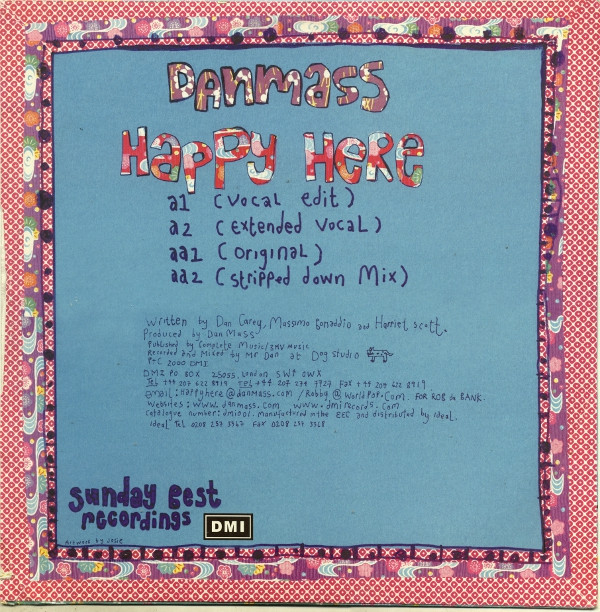 Danmass
Happy Here
a1 (vocal edit)
a2 (extended vocal)
aa1 (original)
aa2 (stripped down mix)
Written by Dan Carey, Massimo Bonaddio and Harriet Scott.
Produced by Dan Mass.
Published by Complete Music/EMV Music
Recorded and Mixed by Mr Dan at Dog Studio
P+C 2000 DMI
DMI PO BOX 25055 London SW4
Tel +44 207 622 8919 Tel +44 207 Fax +44 207 622 8919
Email: happyhere@danmass.com / Robby@WorldPop.com. FOR ROB da BANK.
Websites: www.danmass.com www.dmirecords.com
Catalogue number: dmi001. manufactured in the EEC and distributed by ideal.
ideal Tel 0208 237 Fax 0208 237
Sunday Best
recordings
DMI
Artwork by Josie